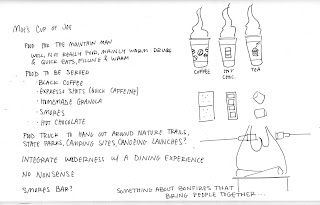 Moe's Cup of Joe
Food for the mountain man
Well, not really food, mainly warm drinks
& quick eats, filling & warm
Food to be served
• Black coffee
• Espresso shots (quick caffeine)
• Homemade granola
• Smores
• Hot chocolate
Food truck to hang out around nature trails,
state parks, camping sites, canoeing launches?
Integrate wilderness w/ a dining experience
No nonsense
Smores bar?
Coffee
Hot
Choc.
Tea
Something about bonfires that
bring people together...